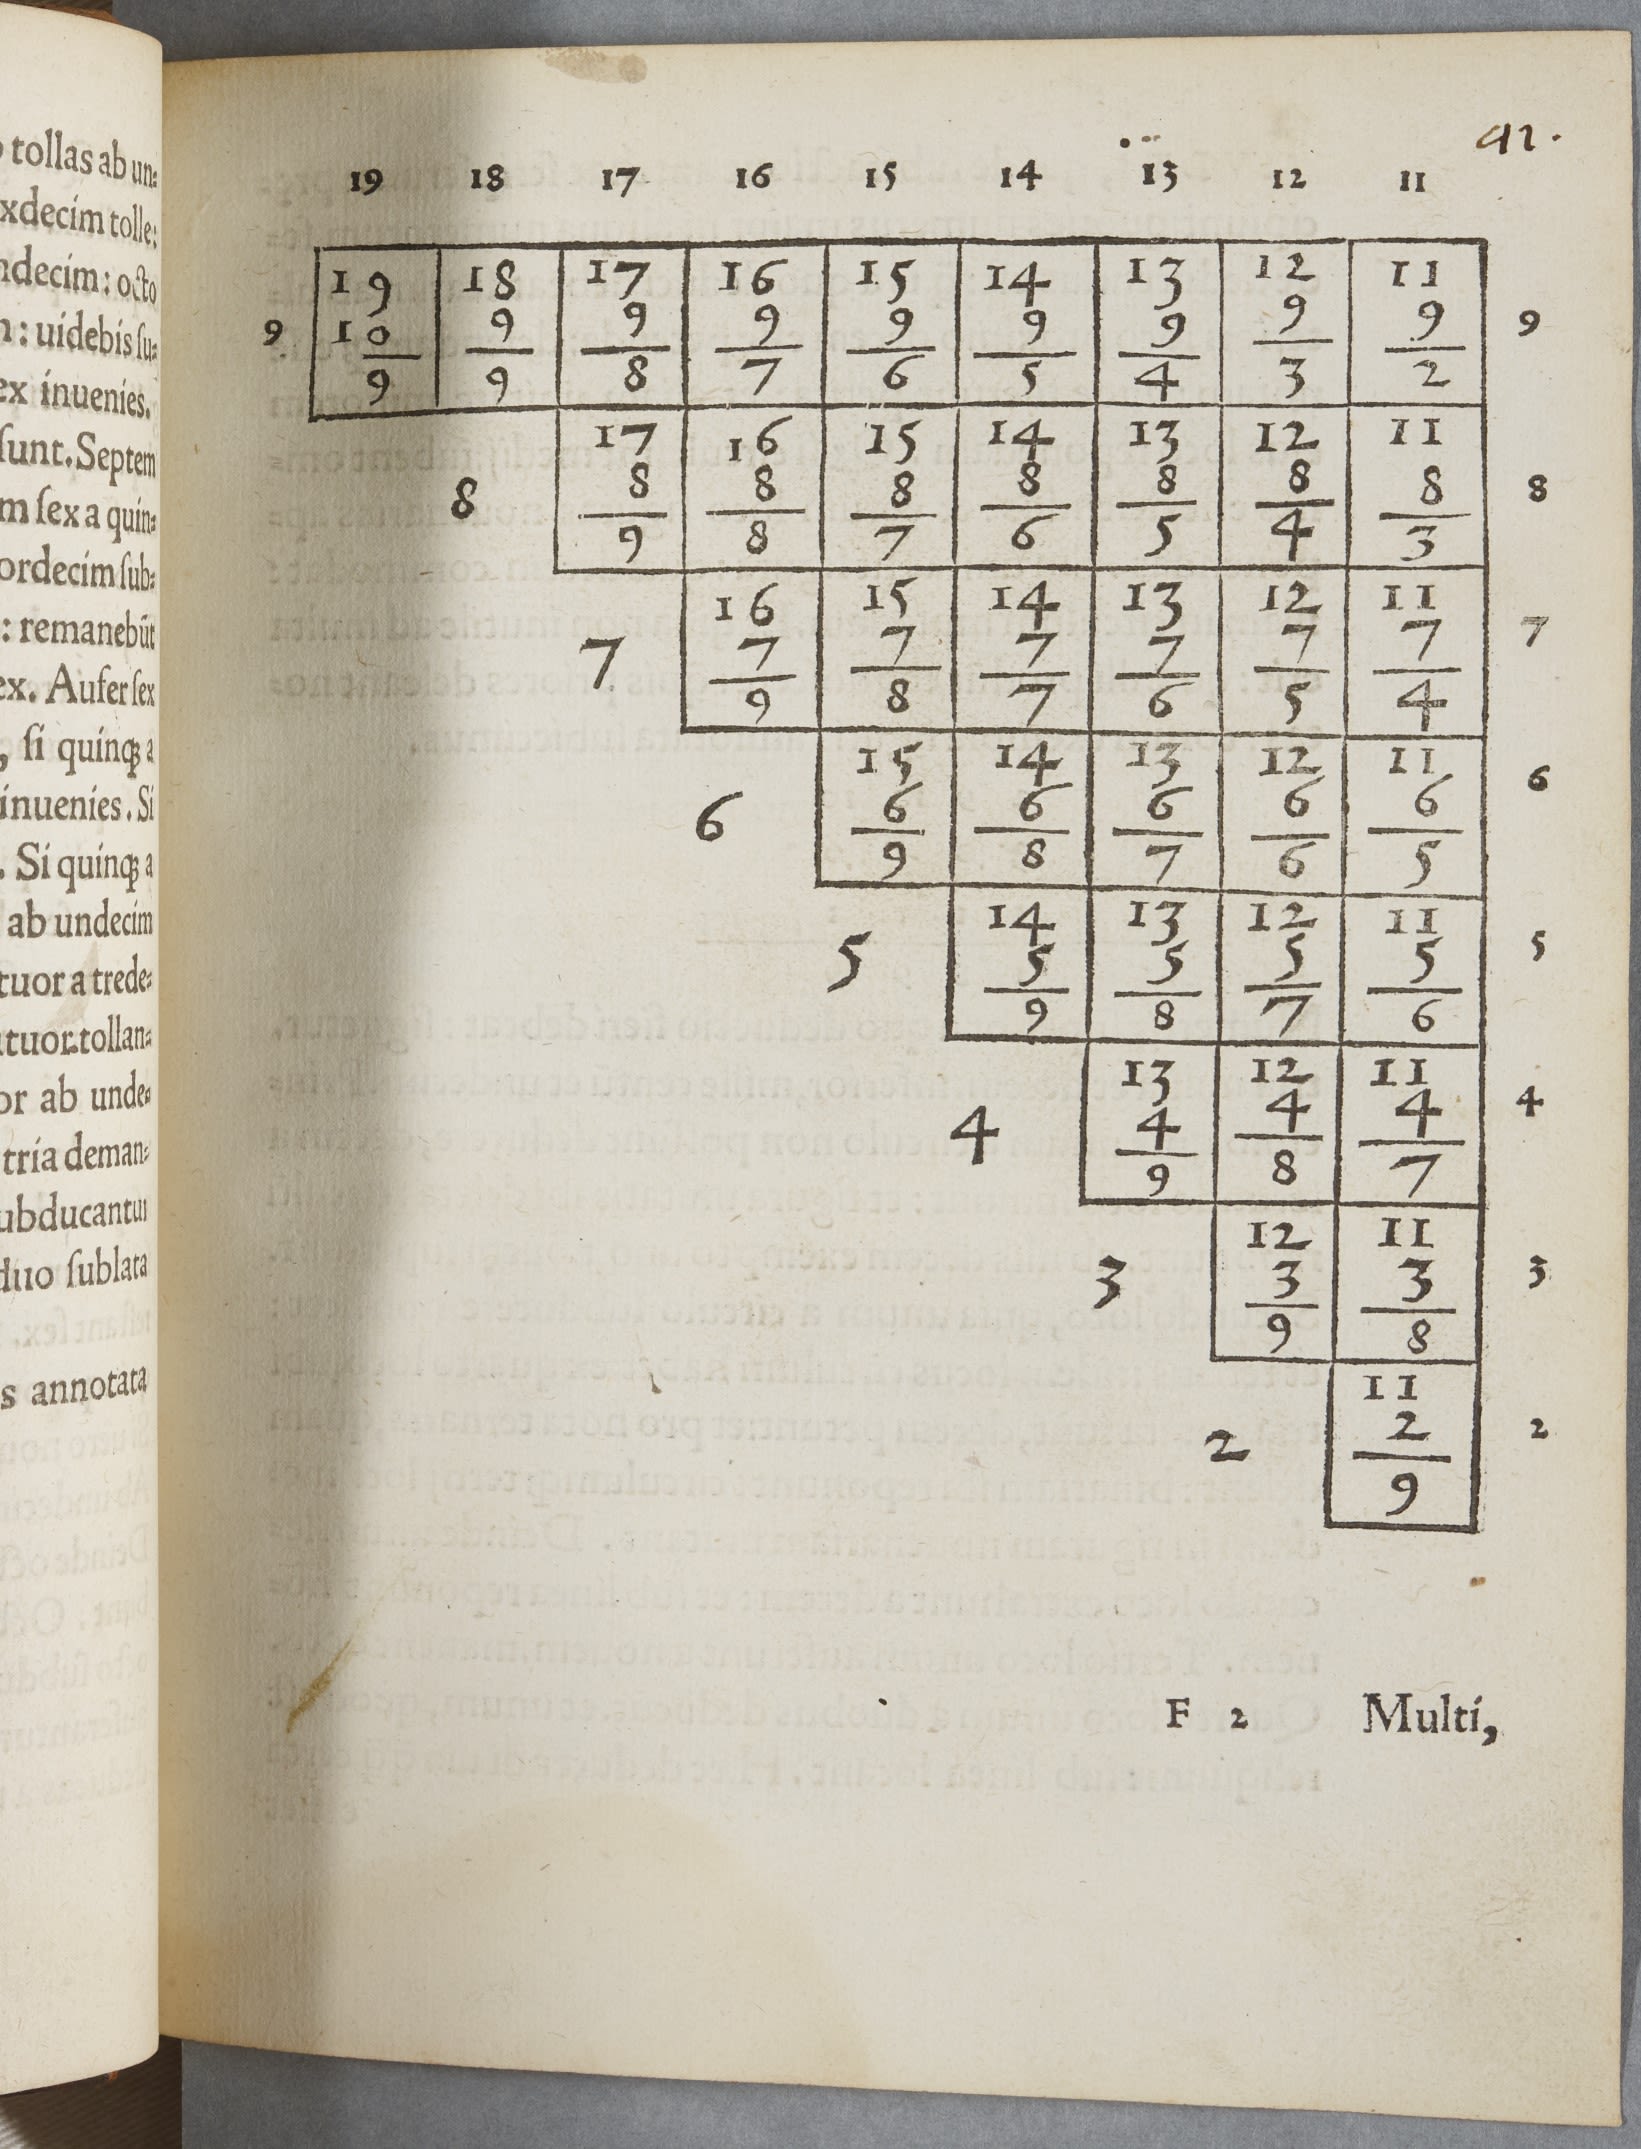 tollas ab un=
xdecim tolle:
ndecim: octo
n: uidebis ſu=
ex inuenies.
ſunt. Septem
m ſex a quin=
ordecim ſub=
: remanebūt
ex. Aufer ſex
, ſi quinqꝫ a
inuenies. Si
. Si quinqꝫ a
ab undecim
tuor a trede=
tuor tollan=
or ab unde=
tria deman=
ubducantur
duo ſublata
s annotata
41.
19 18 17 16 15 14 13 12 11
19 18 17 16 15 14 13 12 11
9 10 9 9 9 9 9 9 9 9 9
9 9 8 7 6 5 4 3 2
17 16 15 14 13 12 11
8 8 8 8 8 8 8 8 8
9 8 7 6 5 4 3
16 15 14 13 12 11
7 7 7 7 7 7 7 7
9 8 7 6 5 4
15 14 13 12 11
6 6 6 6 6 6 6
9 8 7 6 5
14 13 12 11
5 5 5 5 5 5
9 8 7 6
13 12 11
4 4 4 4 4
9 8 7
12 11
3 3 3 3
9 8
11
2 2 2
9
F 2 Multi,